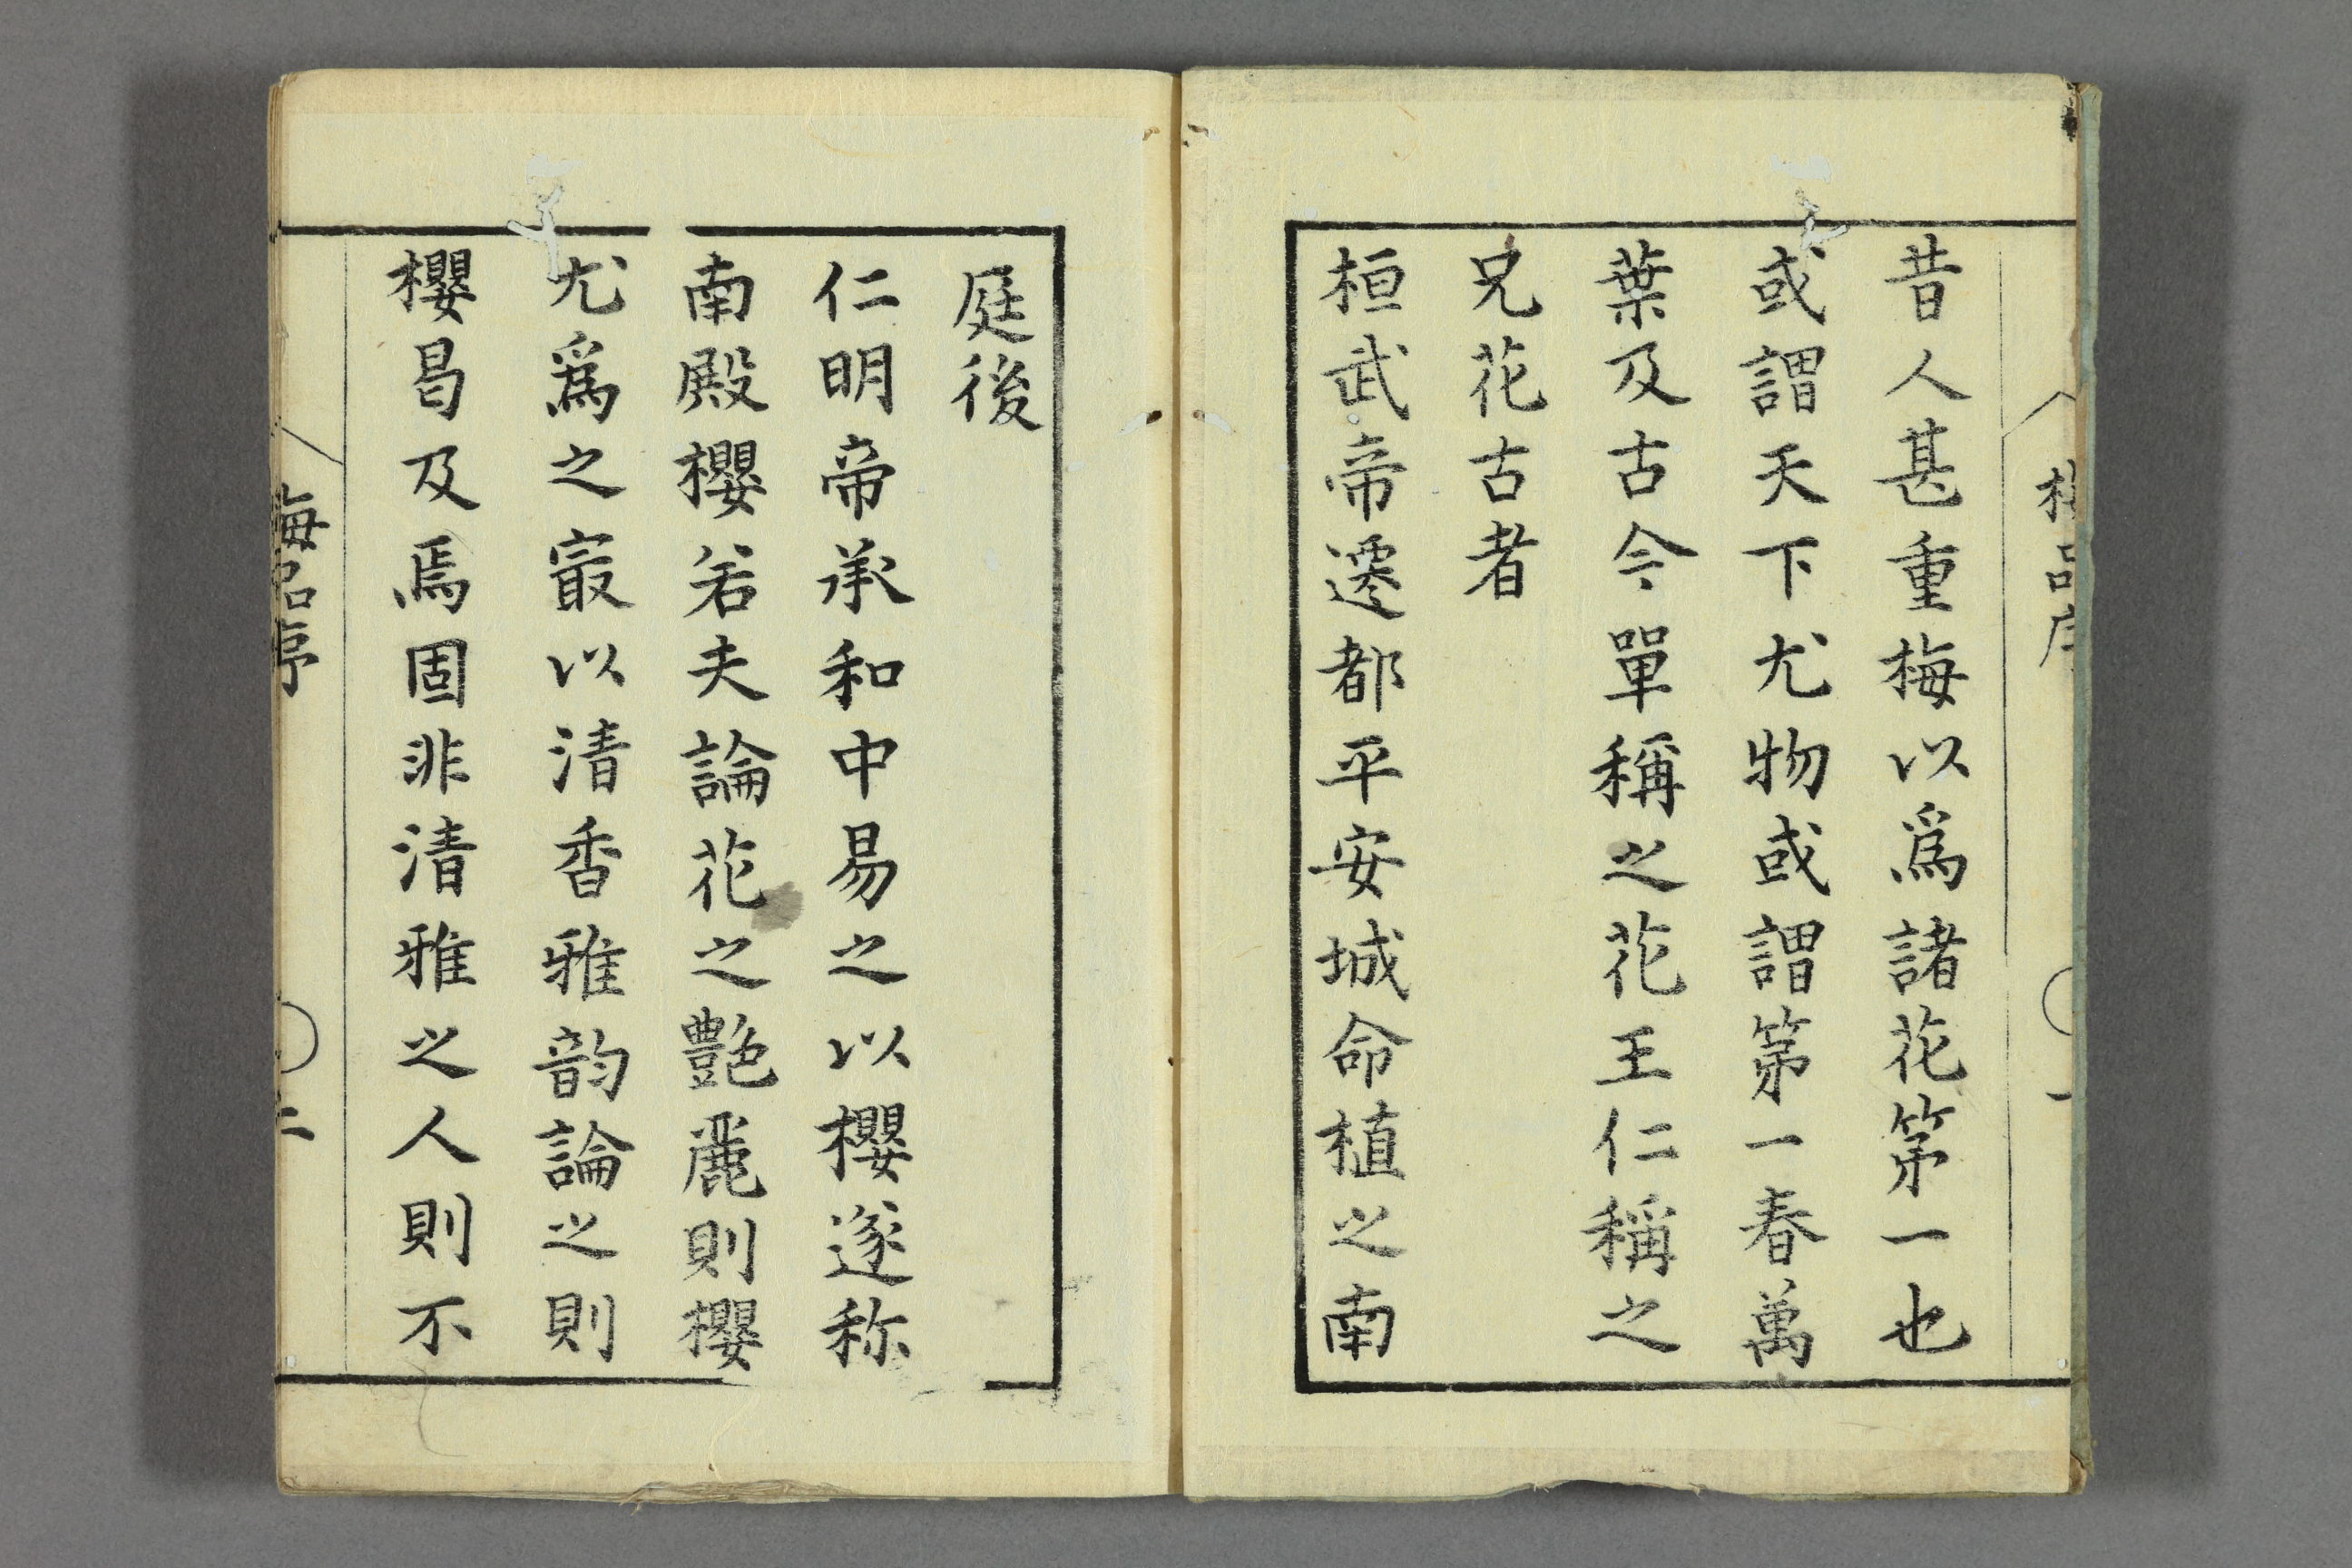 昔人甚重梅以爲諸花第一也
或謂天下尤物或謂第一春萬
葉及古今單稱之花王仁稱之
兄花古者
桓武帝遷都平安城命植之南
梅品序
一
庭後
仁明帝承和中易之以櫻遂称
南殿櫻若夫論花之艶麗則櫻
尤爲之最以清香雅韵論之則
櫻曷及焉固非清雅之人則不
梅品序
二